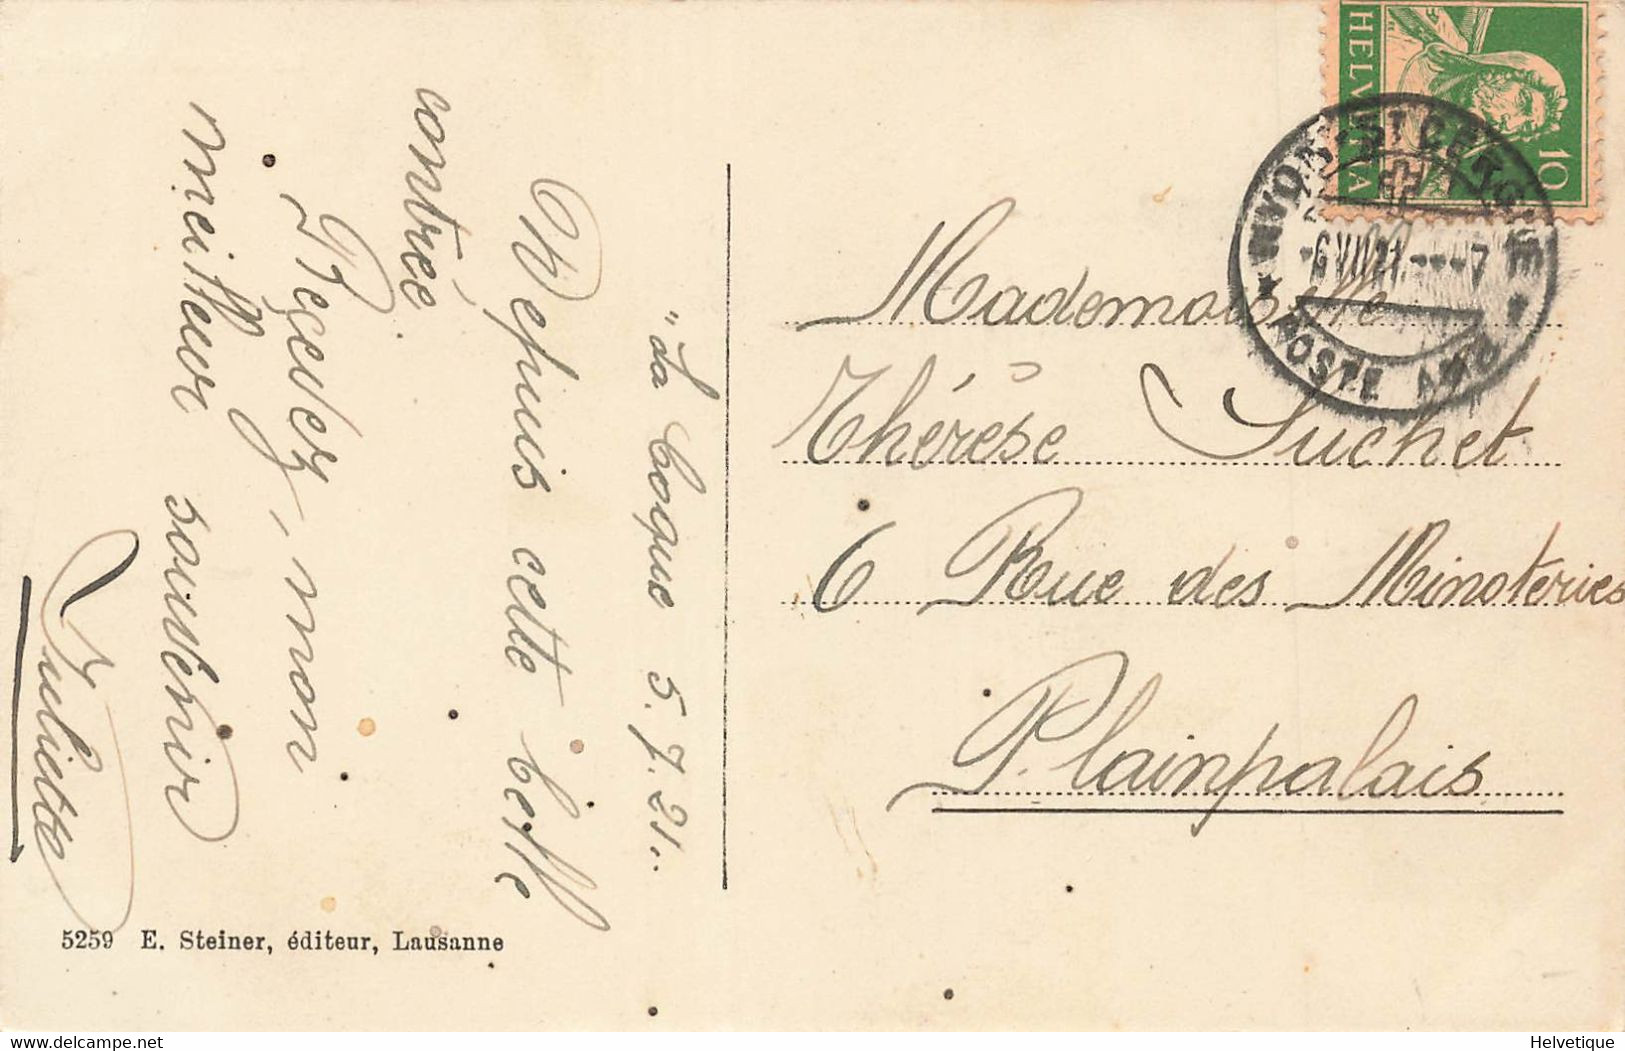 "La Coque 5.7.21.
Depuis cette belle
contrée
Recevez, mon
meilleur souvenir
Juliette
5259 E. Steiner, éditeur, Lausanne
HELVETIA
10
NYON-ST CERGUE
POSTE AMB.
Mademoiselle
Thérèse Suchet
6 Rue des Minoteries
Plainpalais
www.delcampe.net
Helvetique